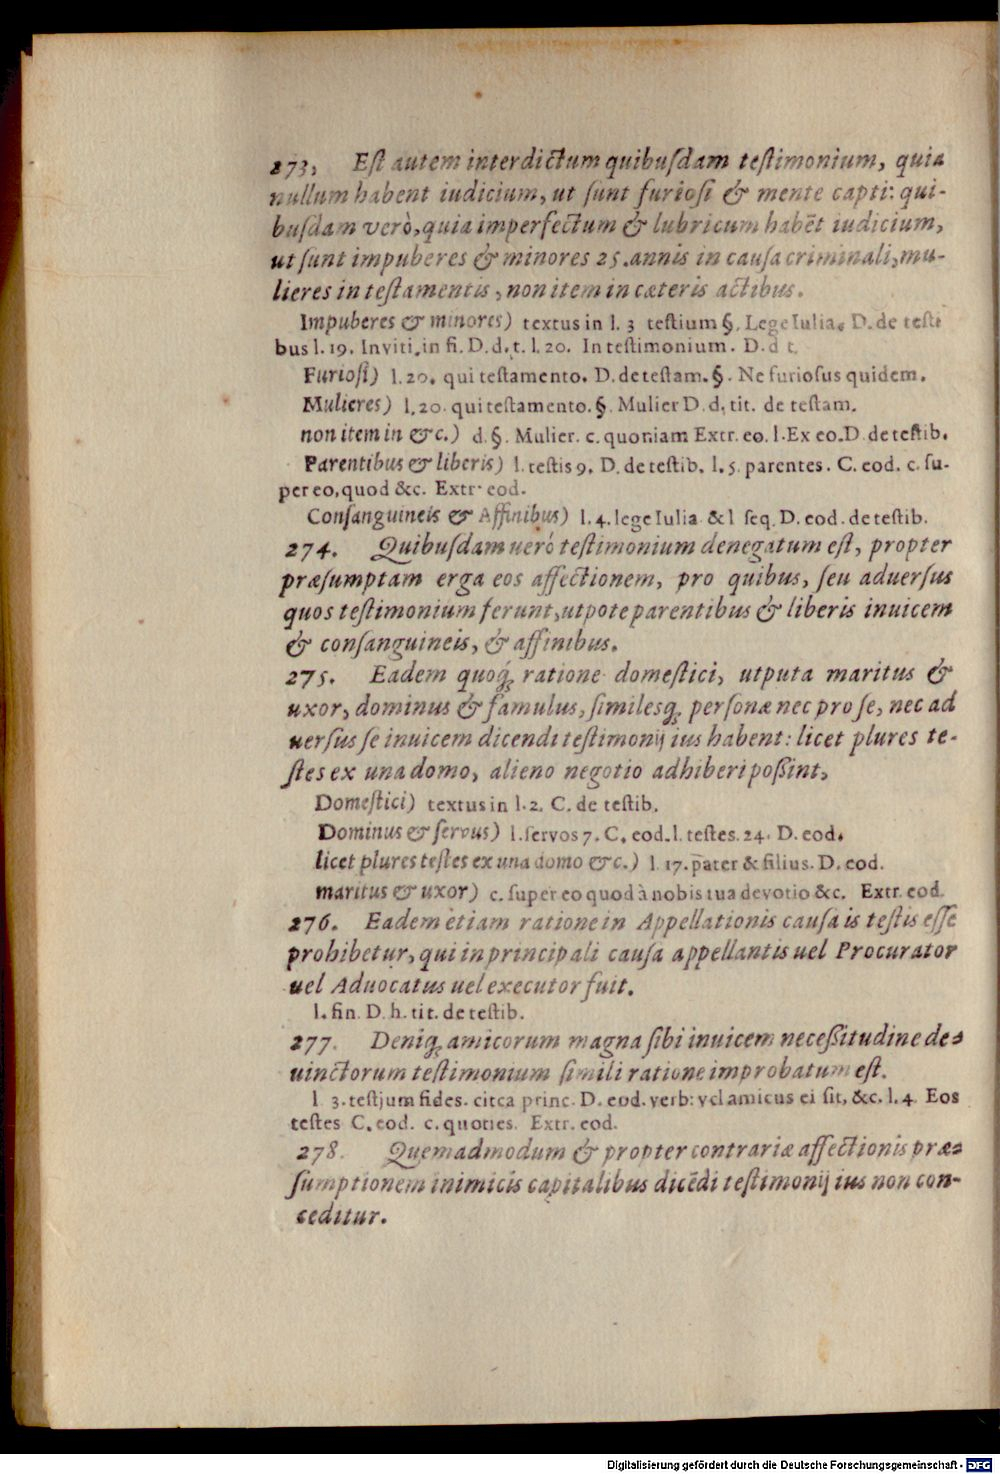 273. Eſt autem interdictum quibuſdam teſtimonium, quia
nullum habent iudicium, ut ſunt furioſi & mente capti: qui-
buſdam verò, quia imperfectum & lubricum habēt iudicium,
ut ſunt impuberes & minores 25. annis in cauſa criminali, mu-
lieres in teſtamentis, non item in cæteris actibus.
Impuberes & minores) textus in l. 3 teſtium §. Lege Iulia. D. de teſti
bus l. 19. Inviti, in fi. D. d. t. l. 20. In teſtimonium. D. d t.
Furioſi) l. 20. qui teſtamento. D. de teſtam. §. Ne furioſus quidem.
Mulieres) l. 20. qui teſtamento. §. Mulier D. d. tit. de teſtam.
non item in &c.) d. §. Mulier. c. quoniam Extr. eo. l. Ex eo. D. de teſtib.
Parentibus & liberis) l. teſtis 9. D. de teſtib. l. 5. parentes. C. eod. c. ſu-
per eo, quod &c. Extr. eod.
Conſanguineis & Affinibus) l. 4. lege Iulia & l ſeq. D. eod. de teſtib.
274. Quibuſdam ueró teſtimonium denegatum eſt, propter
præſumptam erga eos affectionem, pro quibus, ſeu aduerſus
quos teſtimonium ferunt, utpote parentibus & liberis inuicem
& conſanguineis, & affinibus.
275. Eadem quoq́; ratione domeſtici, utputa maritus &
uxor, dominus & famulus, ſimilesq; perſonæ nec pro ſe, nec ad
uerſus ſe inuicem dicendi teſtimonij ius habent: licet plures te-
ſtes ex una domo, alieno negotio adhiberi poßint,
Domeſtici) textus in l. 2. C. de teſtib.
Dominus & ſervus) l. ſervos 7. C. eod. l. teſtes. 24. D. eod.
licet plures teſtes ex una domo &c.) l. 17. pater & filius. D. eod.
maritus & uxor) c. ſuper eo quod à nobis tua devotio &c. Extr. eod.
276. Eadem etiam ratione in Appellationis cauſa is teſtis eſſe
prohibetur, qui in principali cauſa appellantis uel Procurator
uel Aduocatus uel executor fuit.
l. fin. D. h. tit. de teſtib.
277. Deniq; amicorum magna ſibi inuicem neceßitudine de-
uinctorum teſtimonium ſimili ratione improbatum eſt.
l 3. teſtium fides. circa princ. D. eod. verb: vel amicus ei ſit, &c. l. 4. Eos
teſtes C. eod. c. quoties. Extr. eod.
278. Quemadmodum & propter contrariæ affectionis præ-
ſumptionem inimicis capitalibus dicēdi teſtimonij ius non con-
ceditur.
Digitalisierung gefördert durch die Deutsche Forschungsgemeinschaft - DFG